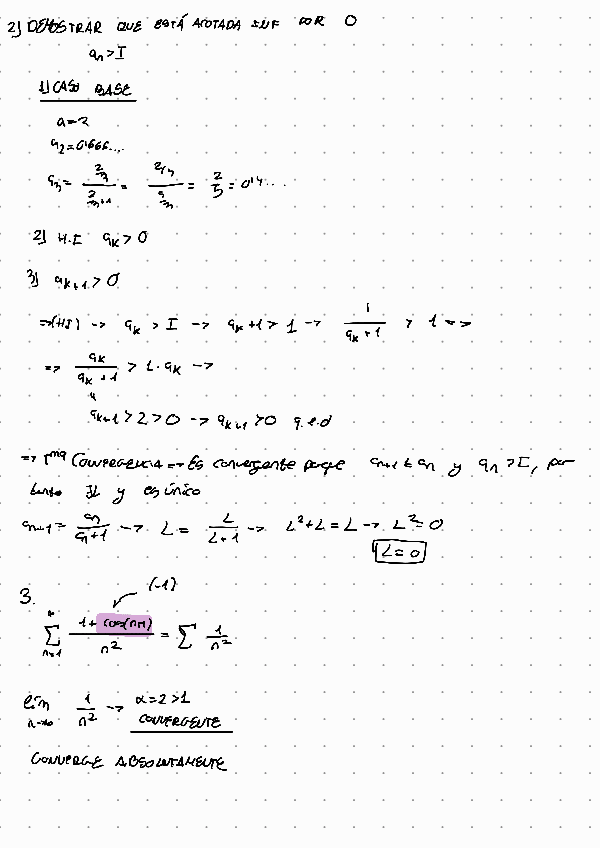 2) DEMOSTRAR QUE ESTÁ ACOTADA INF POR 0
an > I
1) CASO BASE
a = 2
a2 = 0'666...
a3 = (2/3)/(2/3+1) = = 2/5 = 0'4...
2) H.I ak > 0
3) ak+1 > 0
=> (HI) -> ak > I -> ak+1 > 1 -> 1/(ak+1) > 1 =>
=> ak/(ak+1) > 1·ak ->
ak+1 > 2 > 0 -> ak+1 > 0 q.e.d
=> Tma Convergencia => Es convergente porque an+1 ≤ an y an > I, por
tanto ∃L y es único
an+1 = an/(an+1) -> L = L/(L+1) -> L²+L = L -> L² = 0
L = 0
3. (-1)
∑ n=1 (1+cos(nπ))/n² = ∑ 1/n²
lim n->∞ 1/n² -> α=2>1
CONVERGENTE
CONVERGE ABSOLUTAMENTE